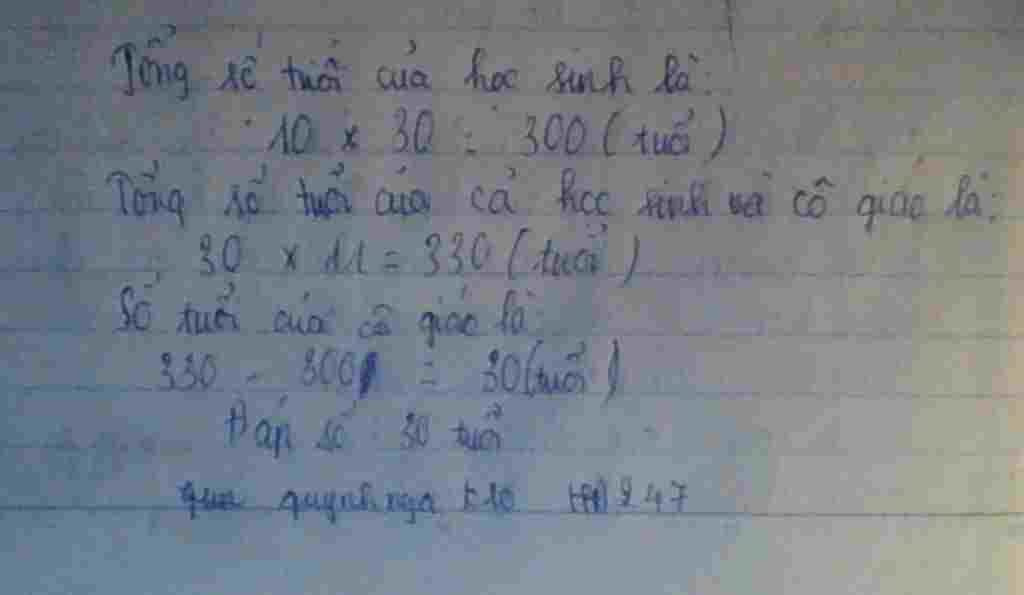 Tổng số tuổi của học sinh là:
10 x 30 = 300 (tuổi)
Tổng số tuổi của cả học sinh và cô giáo là:
30 x 11 = 330 (tuổi)
Số tuổi của cô giáo là
330 - 300 = 30 (tuổi)
Đáp số 30 tuổi
quynhnga 247